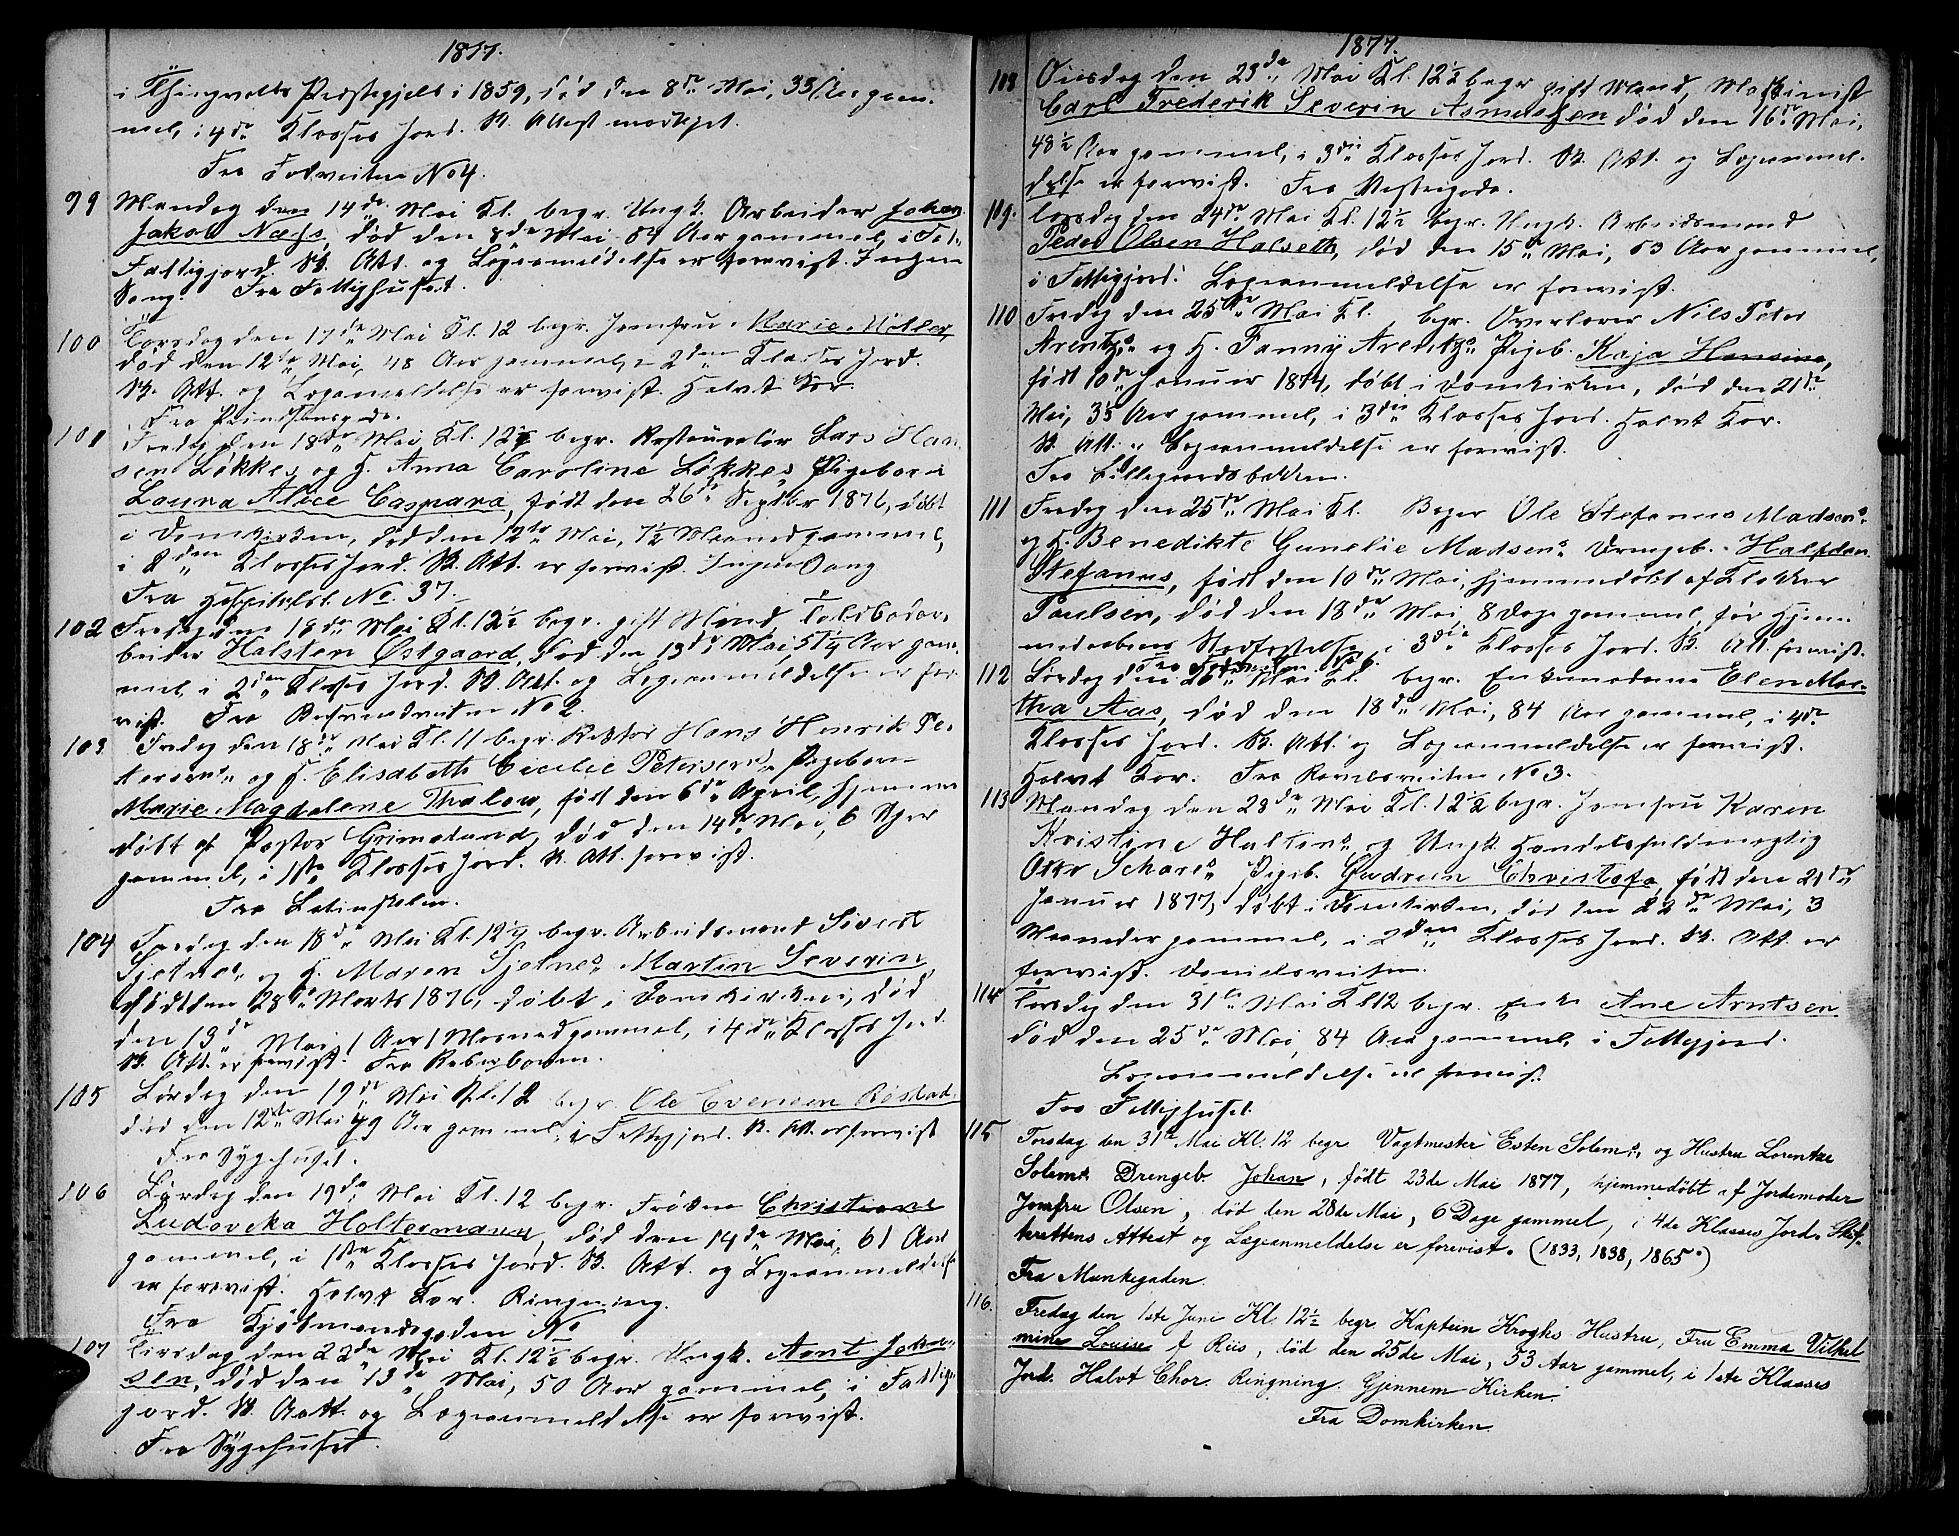 1877.
i Thingvolls Præstegjeld i 1859, død den 8de Mai, 33 Aar gam-
mel, i 4de Klasses Jord. Sk. Attest modtaget.
Fra Fodveiten No 4.
99 Mandag den 14de Mai Kl. begr. Ungk. Arbeider Johan
Jakob Næss, død den 8de Mai, Aar gammel, i
Fattigjord. Sk. Att. og Lægeanmeldelse er forevist. Ingen
Sang. Fra Fattighuset.
100 Torsdag den 17de Mai Kl. 12 begr. Jomfru Karie Möller,
død den 12te Mai, 48 Aar gammel, i 2den Klasses Jord.
Sk. Att. og Lægeanmeldelse er forevist. Halvt Kor.
Fra Prindsensgade.
101 Fredag den 18de Mai Kl. 12½ begr. Restauratør Lars Han-
sen Løkkes og H. Anna Caroline Løkkes Pigebarn
Laura Alice Caspara, født den 26de Septbr 1876, døbt
i Domkirken, død den 12te Mai, 7½ Maaned gammel,
i 2den Klasses Jord. Sk. Att. er forevist. Ingen Sang
Fra Hospitalsl. No. 37.
102 Fredag den 18de Mai Kl. 12½ begr. gift Mand, Toldbodar-
beider Halsten Østgaard, død den 13de Mai, 51¼ Aar gam-
mel, i 2den Klasses Jord. Sk. Att. og Lægeanmeldelse er fore-
vist. Fra No 2.
103 Fredag den 18de Mai Kl. 11 begr. Rektor Hans Henrik Pe-
tersens og H. Elisabeth Cicilie Petersens Pigebarn
Marie Magdalene Thalow, født den 6te April, hjemme-
døbt af Pastor Grimelund, død den 14de Mai, 6 Uger
gammel, i 1ste Klasses Jord. Sk. Att. forevist.
Fra Latinskolen.
104 Fredag den 18de Mai Kl. 12½ begr. Arbeidsmand Sivert
Tjetnes og H. Maren Tjetnes Martin Severin,
født den 28de Marts 1876, døbt i Domkirken, død
den 13de Mai, 1 Aar 1 Maaned gammel, i 4de Klasses Jord.
Sk. Att. er forevist. Fra Reberbanen.
105 Lørdag den 19de Mai Kl. 12 begr. Ole Evensen Røstad,
død den 12te Mai, 49 Aar gammel, i Fattigjord. Sk. Att. er forevist
Fra Sygehuset.
106 Lørdag den 19de Mai Kl. 12 begr. Frøken Christiane
Ludovika Holtermann, død den 14de Mai, 61 Aar
gammel, i 1ste Klasses Jord. Sk. Att. og Lægeanmeldelse
er forevist. Halvt Kor. Ringning.
Fra Kjøbmandsgaden No
107 Tirsdag den 22de Mai Kl. 12½ begr. Ungk. Arnt Johan-
sen, død den 13de Mai, 50 Aar gammel, i Fattig-
jord. Sk. Att. og Lægeanmeldelse er forevist.
Fra Sygehuset.
1877.
108 Onsdag den 23de Mai Kl. 12½ begr. gift Mand, Maskinist
Carl Frederik Severin Asmussen død den 16de Mai,
48½ Aar gammel, i 3die Klasses Jord. Sk. Att. og Lægeanmel-
delse er forevist. Fra Vestregade.
109. Torsdag den 24de Mai Kl. 12½ begr. Ungk. Arbeidsmand
Peder Olsen Halseth, død den 15de Mai, 53 Aar gammel,
i Fattigjord. Lægeanmeldelse er forevist.
110 Fredag den 25de Mai Kl. begr. Overlærer Nils Peter
Arentz's og H. Fanny Arentz's Pigeb. Kaja Hansine,
født 10de Januar 1874, døbt i Domkirken, død den 21de
Mai, 3 Aar gammel, i 3die Klasses Jord. Halvt Kor.
Sk. Att. og Lægeanmeldelse er forevist.
Fra Lillegaardsbakken.
111 Fredag den 25de Mai Kl. Bager Ole Stefanus Madsens
og H. Benedikte Gunelie Madsens Drengeb. Halfdan
Stefanus, født den 10de Mai, hjemmedøbt af Klokker
Paulsen, død den 18de Mai, 8 Dage gammel, før Hjem-
medaabens Stadfæstelse, i 3die Klasses Jord. Sk. Att. forevist.
112 Lørdag den 26de Mai Kl. begr. Enkemadame Elen Mar-
tha Aas, død den 18de Mai, 84 Aar gammel, i 4de
Klasses Jord. Sk. Att. og Lægeanmeldelse er forevist.
Halvt Kor. Fra Ravelsveiten No 3.
113 Mandag den 28de Mai Kl. 12½ begr. Jomfru Karen
Kristine Hultins og Ungk. Handelsfuldmægtig
Otto Schars Pigeb. Gudrun Christofa, født den 21de
Januar 1877, døbt i Domkirken, død den 22de Mai, 3
Maaneder gammel, i 2den Klasses Jord. Sk. Att. er
forevist. Danielsveiten.
114 Torsdag den 31te Mai Kl 12 begr. Enke Ane Arntsen
død den 25de Mai, 84 Aar gammel, i Fattigjord.
Lægeanmeldelse er forevist
Fra Fattighuset.
115 Torsdag den 31te Mai Kl. 12 begr Vagtmester Esten Solems og Hustru Lorentze
Solems Drengeb. Johan, født 23de Mai 1877, hjemmedøbt af Jordemoder
Jomfru Olsen, død den 28de Mai, 6 Dage gammel, i 4de Klasses Jord. Skif-
terettens Attest og Lægeanmeldelse er forevist. (1833, 1838, 1865.)
Fra Munkegaden.
116. Fredag den 1ste Juni Kl. 12½ begr Kaptein Kroghs Hustru, Fru Emma Vilhel
mine Louise f Riis, død den 25de Mai, 53 Aar gammel, i 1ste Klasses
Jord. Halvt Chor. Ringning. Gjennem Kirken.
Fra Domkirken.